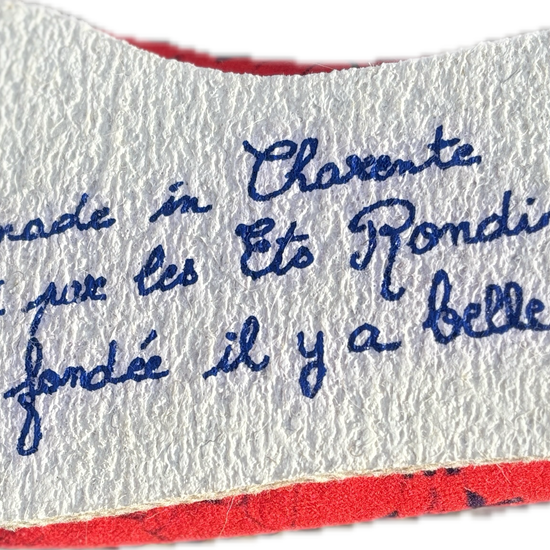 made in Charente
par les Ets Rondi
fondée il y a belle